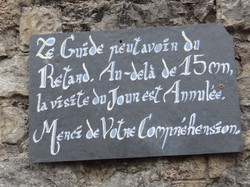 Le Guide peut avoir du
Retard. Au-delà de 15 mn,
la visite du Jour est Annulée.
Merci de Votre Compréhension.